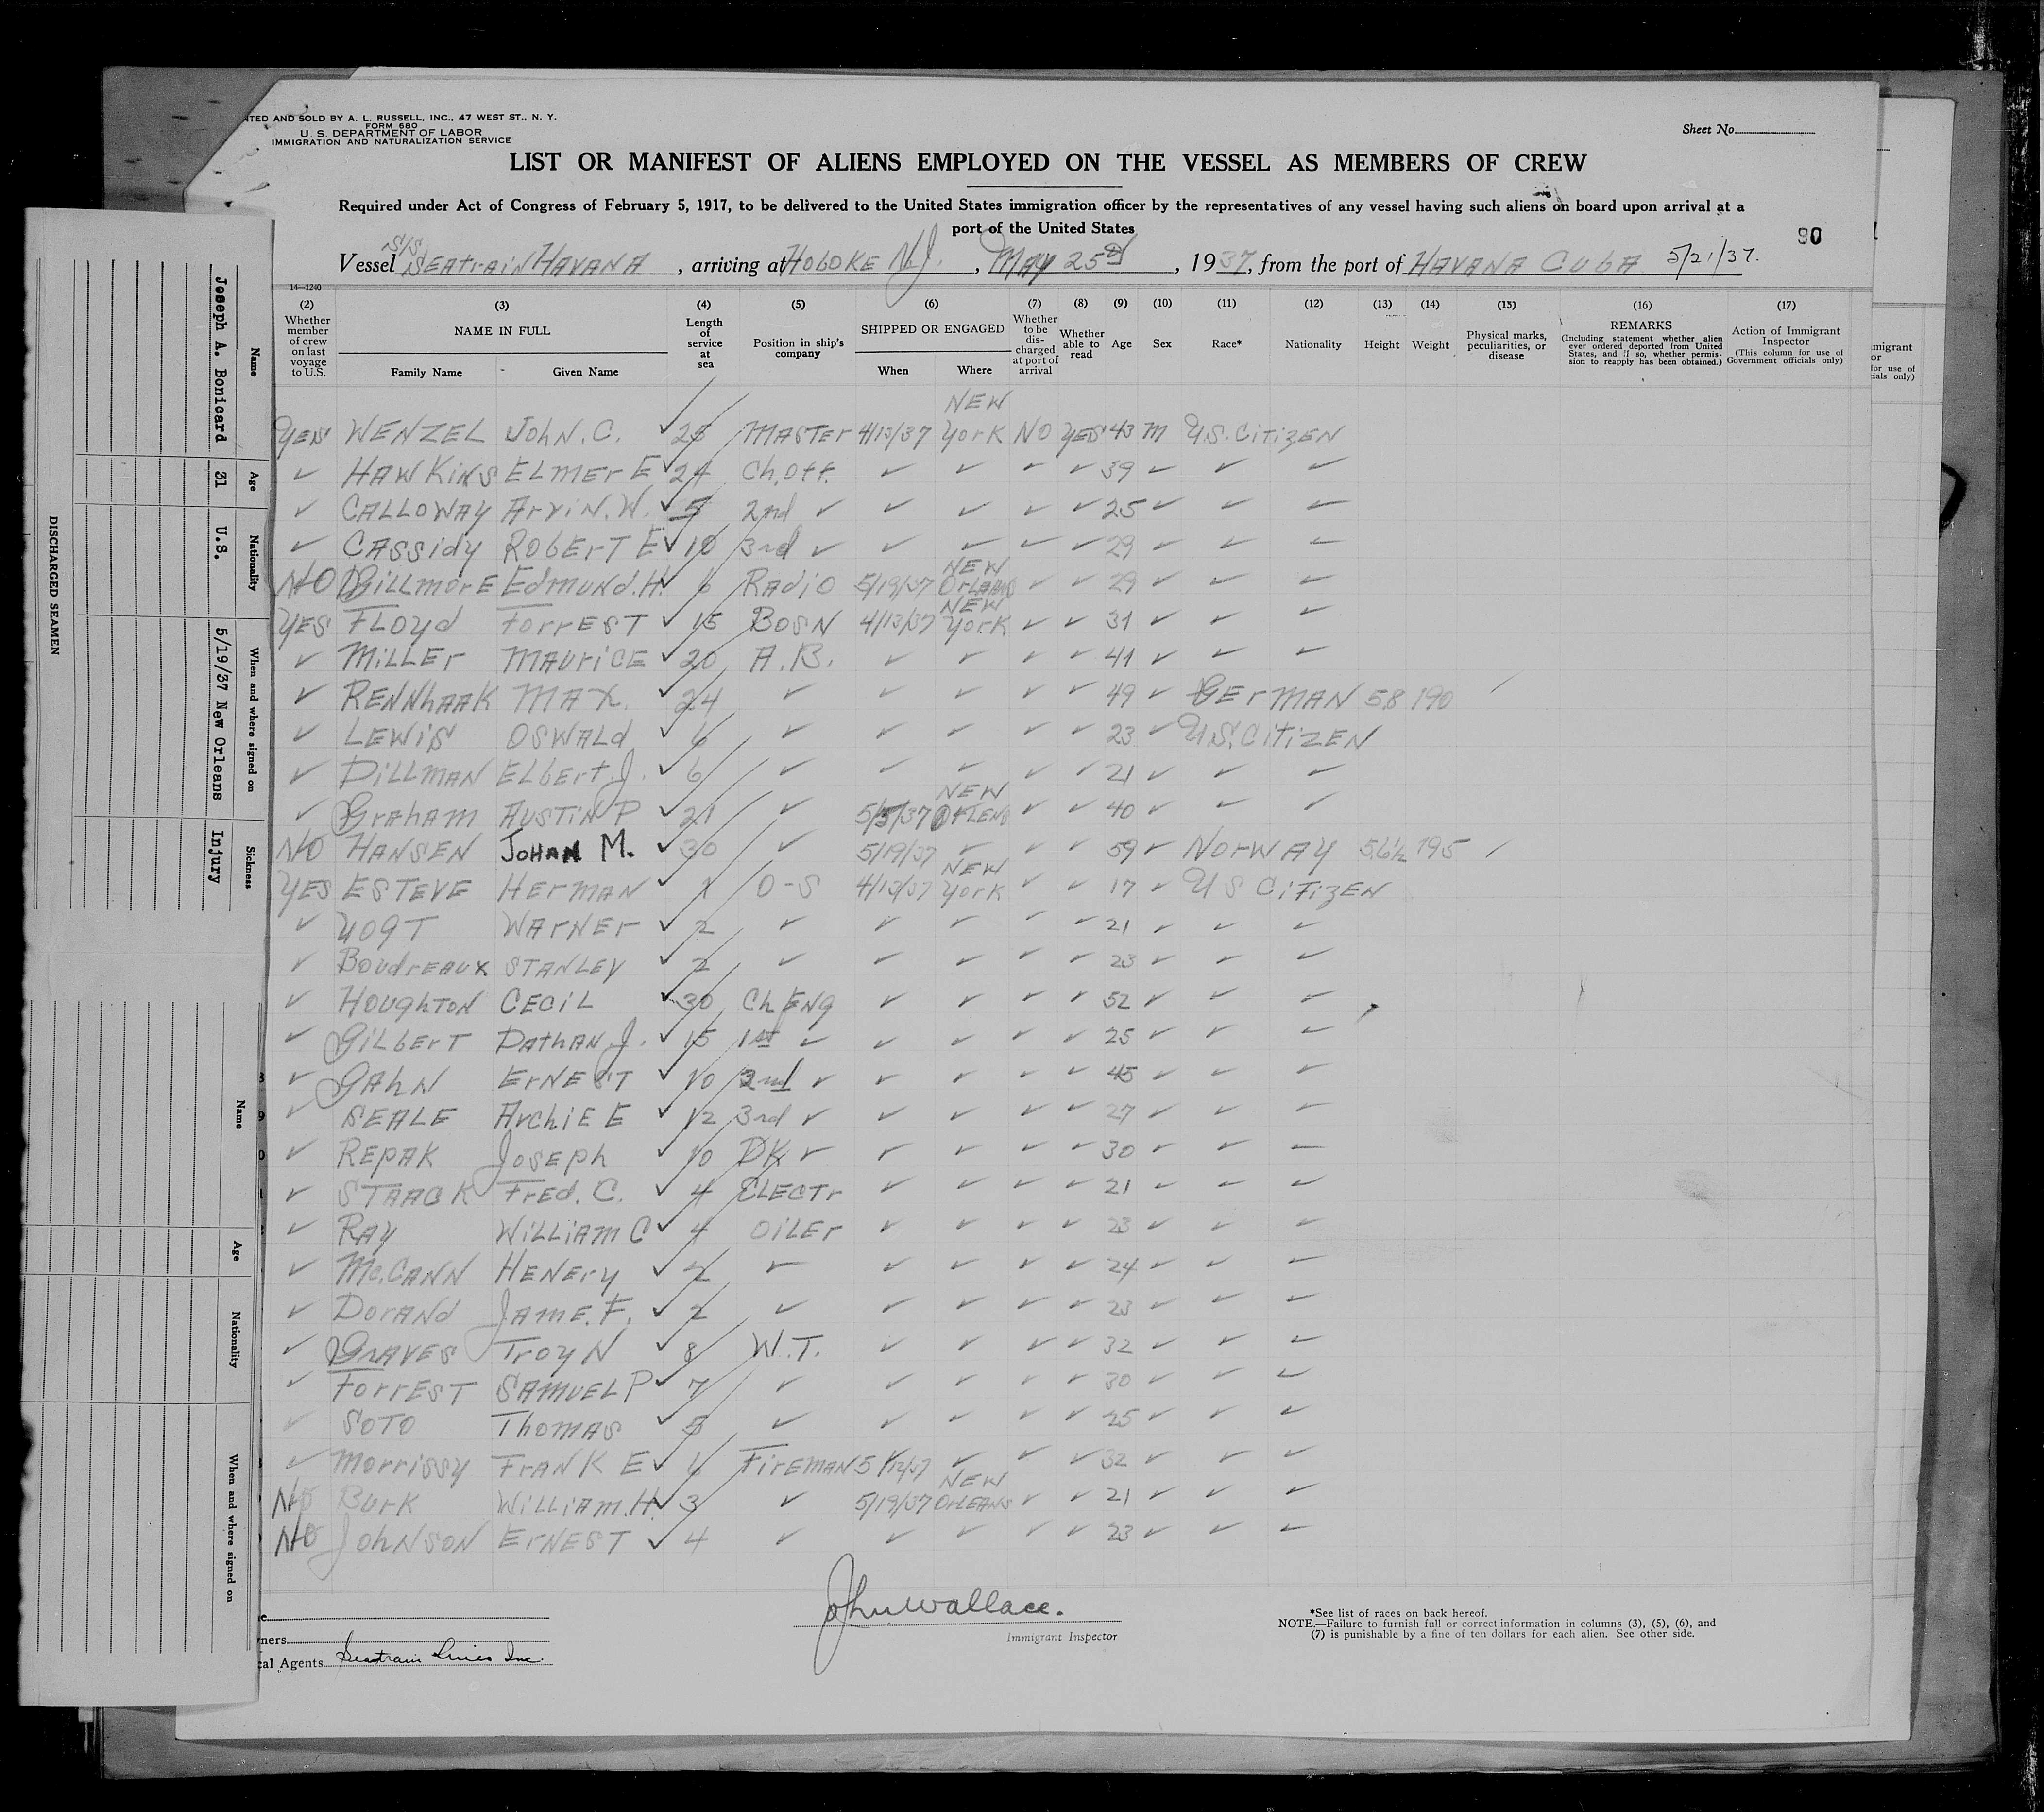 NTED AND SOLD BY A. L. RUSSELL, INC., 47 WEST ST., N. Y.
FORM 680
U. S. DEPARTMENT OF LABOR
IMMIGRATION AND NATURALIZATION SERVICE
Sheet No.
LIST OR MANIFEST OF ALIENS EMPLOYED ON THE VESSEL AS MEMBERS OF CREW
Required under Act of Congress of February 5, 1917, to be delivered to the United States immigration officer by the representatives of any vessel having such aliens on board upon arrival at a
port of the United States
90
Vessel S/S SEAtrAiN HAVANA, arriving at HOBOKE N.J., MAY 25th, 1937, from the port of HAVANA CUBA 5/21/37.
14—1240
(2) (3) (4) (5) (6) (7) (8) (9) (10) (11) (12) (13) (14) (15) (16) (17)
Whether member of crew on last voyage to U.S.
NAME IN FULL
Family Name Given Name
Length of service at sea
Position in ship's company
SHIPPED OR ENGAGED
When Where
Whether to be discharged at port of arrival
Whether able to read
Age
Sex
Race*
Nationality
Height
Weight
Physical marks, peculiarities, or disease
REMARKS
(Including statement whether alien ever ordered deported from United States, and if so, whether permission to reapply has been obtained.)
Action of Immigrant Inspector
(This column for use of Government officials only)
YES WENZEL JOhN. C. ✓ 25 MASTEr 4/13/37 NEW YOrK NO YES 43 M U.S. CiTizEN
✓ HAWKiNS ELMEr E ✓ 24 Ch.Off. ✓ ✓ ✓ ✓ 39 ✓ ✓ ✓
✓ CALLOWAY ArViN. W. ✓ 5 2nd ✓ ✓ ✓ ✓ ✓ 25 ✓ ✓ ✓
✓ CASSidy ROBErT E ✓ 10 3rd ✓ ✓ ✓ ✓ ✓ 29 ✓ ✓ ✓
NO GiLLMOrE EdMUNd. H. ✓ 6 RAdiO 5/19/37 NEW OrLEANS ✓ ✓ 29 ✓ ✓ ✓
YES FLOyd FOrrEST ✓ 15 BOSN 4/13/37 NEW YOrK ✓ ✓ 31 ✓ ✓ ✓
✓ MiLLEr MAUriCE ✓ 20 A.B. ✓ ✓ ✓ ✓ 41 ✓ ✓ ✓
✓ RENNhAAK MAX. ✓ 24 ✓ ✓ ✓ ✓ ✓ 49 ✓ GErMAN 58 190
✓ LEWiS OSWALd ✓ 6 ✓ ✓ ✓ ✓ ✓ 23 ✓ U.S. CiTiZEN
✓ DiLLMAN ELbErt. J. ✓ 6 ✓ ✓ ✓ ✓ ✓ 21 ✓ ✓ ✓
✓ GrAhAM AUSTiN P ✓ 21 ✓ 5/5/37 NEW ✓ ✓ 40 ✓ ✓ ✓
NO HANSEN JOHAN M. ✓ 30 ✓ 5/19/37 ✓ ✓ ✓ 59 ✓ NOrWAY 5.6½ 195
YES ESTEVE HErMAN ✓ 1 O-S 4/13/37 NEW YOrK ✓ ✓ 17 ✓ U S CiTizEN
✓ VOGT WArNEr ✓ 2 ✓ ✓ ✓ ✓ ✓ 21 ✓ ✓ ✓
✓ BOUdrEAUX STANLEY ✓ 2 ✓ ✓ ✓ ✓ ✓ 23 ✓ ✓ ✓
✓ HOUghTON CECiL ✓ 30 Ch ENg ✓ ✓ ✓ ✓ 52 ✓ ✓ ✓
✓ GiLbErT DAthAN. J. ✓ 15 1st ✓ ✓ ✓ ✓ ✓ 25 ✓ ✓ ✓
✓ GAhN ErNEST ✓ 10 2nd ✓ ✓ ✓ ✓ ✓ 45 ✓ ✓ ✓
✓ SEALE ArchiE E ✓ 12 3rd ✓ ✓ ✓ ✓ ✓ 27 ✓ ✓ ✓
✓ REPAK JOSEph ✓ 10 DK ✓ ✓ ✓ ✓ ✓ 30 ✓ ✓ ✓
✓ STAACK FrEd. C. ✓ 4 ELECTr ✓ ✓ ✓ ✓ 21 ✓ ✓ ✓
✓ RAy WiLLiAM C ✓ 4 OiLEr ✓ ✓ ✓ ✓ 23 ✓ ✓ ✓
✓ Mc.CANN HENEry ✓ 2 ✓ ✓ ✓ ✓ ✓ 24 ✓ ✓ ✓
✓ DOrANd JAME. F. ✓ 2 ✓ ✓ ✓ ✓ ✓ 23 ✓ ✓ ✓
✓ GrAVES TrOy N ✓ 8 W.T. ✓ ✓ ✓ ✓ 32 ✓ ✓ ✓
✓ FOrrEST SAMUEL P ✓ 7 ✓ ✓ ✓ ✓ ✓ 30 ✓ ✓ ✓
✓ SOTO ThOMAS ✓ 5 ✓ ✓ ✓ ✓ ✓ 25 ✓ ✓ ✓
✓ MOrriSSy FrANK E ✓ 6 FirEMAN ✓ ✓ ✓ 32 ✓ ✓ ✓
NO BUrK WiLLiAM. H. ✓ 3 ✓ 5/19/37 NEW OrLEANS ✓ ✓ 21 ✓ ✓ ✓
NO JOhNSON ErNEST ✓ 4 ✓ ✓ ✓ ✓ ✓ 23 ✓ ✓ ✓
John Wallace.
Immigrant Inspector
ners
cal Agents Seatrain Lines Inc.
*See list of races on back hereof.
NOTE.—Failure to furnish full or correct information in columns (3), (5), (6), and
(7) is punishable by a fine of ten dollars for each alien. See other side.
DISCHARGED SEAMEN
Name Age Nationality When and where signed on Sickness
Joseph A. Bonicard 31 U.S. 5/19/37 New Orleans Injury
Name Age Nationality When and where signed on
migrant
or
for use of
ials only)